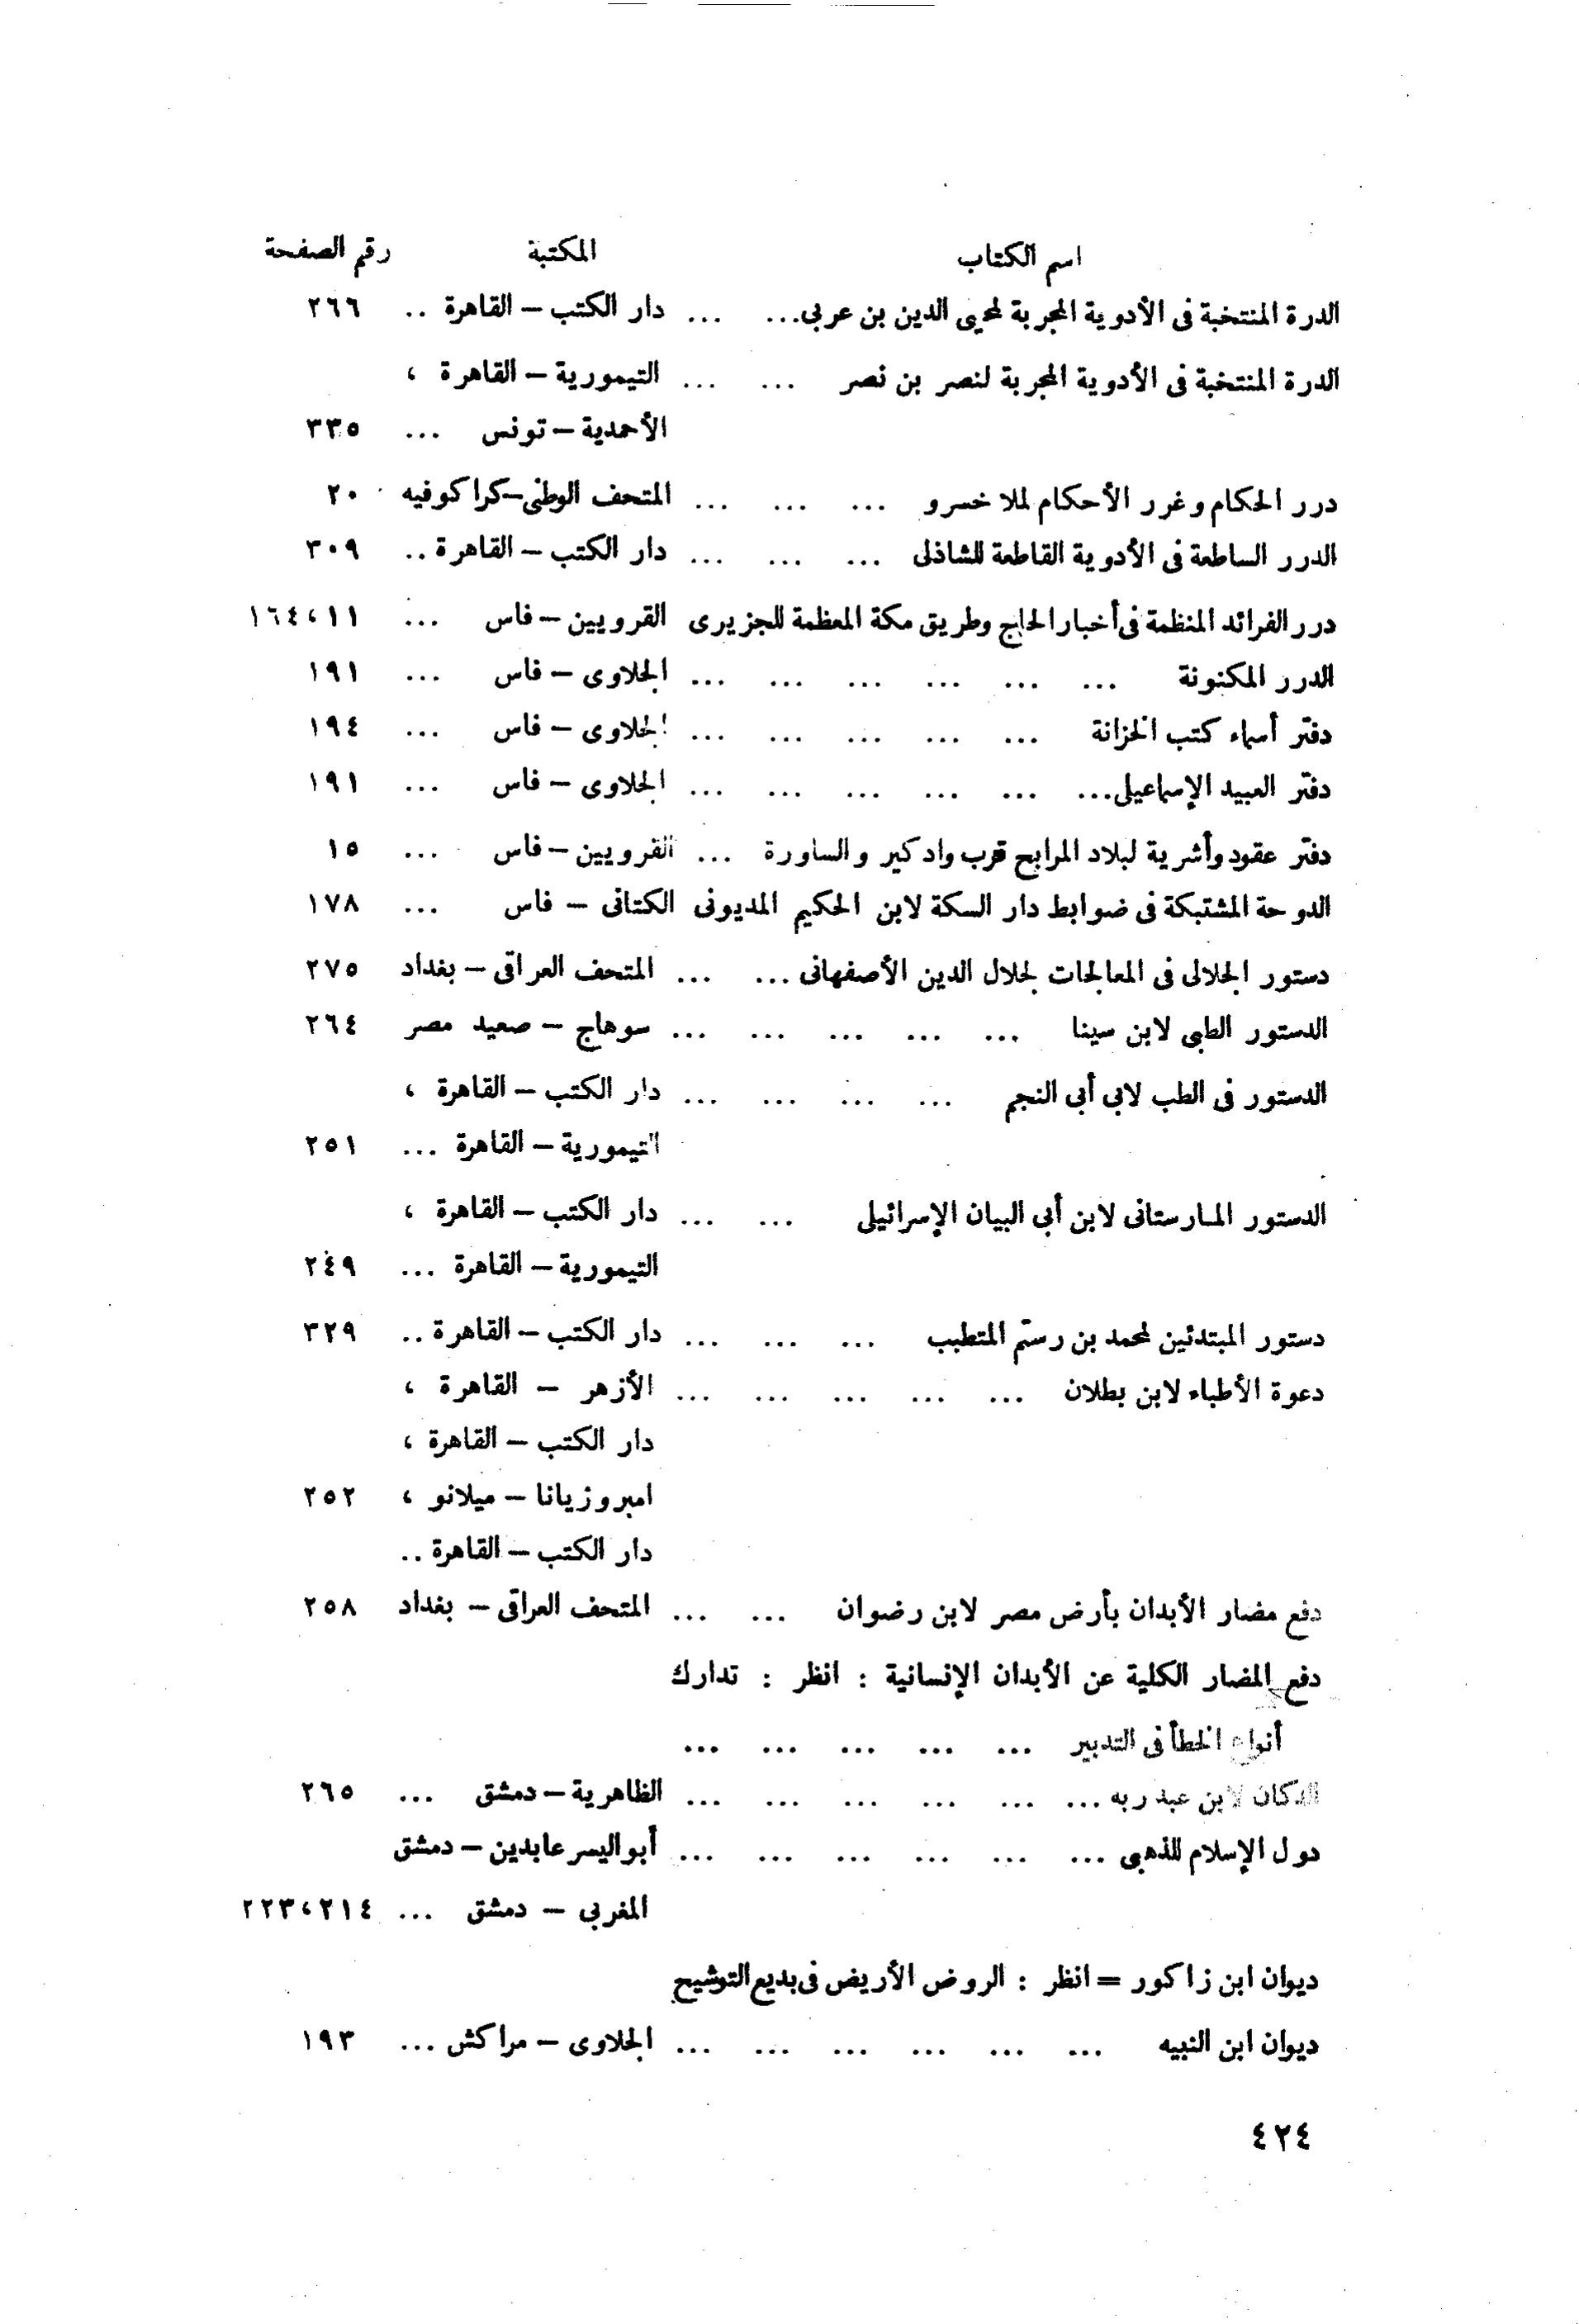 اسم الكتاب المكتبة رقم الصفحة
الدرة المنتخبة فى الأدوية المجربة لمحيى الدين بن عربى... ... دار الكتب – القاهرة .. ٢٦٦
الدرة المنتخبة فى الأدوية المجربة لنصر بن نصر ... ... التيمورية – القاهرة ،
الأحمدية – تونس ... ٣٣٥
درر الحكام وغرر الأحكام لملا خسرو ... ... ... المتحف الوطنى–كراكوفيه ٢٠
الدرر الساطعة فى الأدوية القاطعة للشاذلى ... ... ... دار الكتب – القاهرة .. ٣٠٩
درر الفرائد المنظمة فى أخبار الحاج وطريق مكة المعظمة للجزيرى القرويين – فاس ... ١١ ، ١٦٤
الدرر المكنونة ... ... ... ... ... ... الجلاوى – فاس ... ١٩١
دفتر أسماء كتب الخزانة ... ... ... ... ... الجلاوى – فاس ... ١٩٤
دفتر العبيد الإسماعيلى... ... ... ... ... ... الجلاوى – فاس ... ١٩١
دفتر عقود وأشرية لبلاد المرابح قرب واد كير والساورة ... القرويين – فاس ... ١٥
الدوحة المشتبكة فى ضوابط دار السكة لابن الحكيم المديونى الكتانى – فاس ... ١٧٨
دستور الجلالى فى المعالجات لجلال الدين الأصفهانى ... ... المتحف العراقى – بغداد ٢٧٥
الدستور الطبى لابن سينا ... ... ... ... ... سوهاج – صعيد مصر ٢٦٤
الدستور فى الطب لابى أبى النجم ... ... ... ... دار الكتب – القاهرة ،
التيمورية – القاهرة ... ٢٥١
الدستور المارستانى لابن أبى البيان الإسرائيلى ... ... دار الكتب – القاهرة ،
التيمورية – القاهرة ... ٢٤٩
دستور المبتدئين لمحمد بن رستم المتطبب ... ... ... دار الكتب – القاهرة .. ٣٢٩
دعوة الأطباء لابن بطلان ... ... ... ... ... الأزهر – القاهرة ،
دار الكتب – القاهرة ،
امبروزيانا – ميلانو ، ٢٥٢
دار الكتب – القاهرة ..
دفع مضار الأبدان بأرض مصر لابن رضوان ... ... المتحف العراقى – بغداد ٢٥٨
دفع المضار الكلية عن الأبدان الإنسانية : انظر : تدارك
أنواع الخطأ فى التدبير ... ... ... ... ...
الدكان لابن عبد ربه ... ... ... ... ... ... الظاهرية – دمشق ... ٢٦٥
دول الإسلام للذهبى ... ... ... ... ... ... أبو اليسر عابدين – دمشق
المغربى – دمشق ... ٢١٤ ، ٢٢٣
ديوان ابن زاكور = انظر : الروض الأريض فى بديع التوشيح
ديوان ابن النبيه ... ... ... ... ... ... الجلاوى – مراكش ... ١٩٣
٤٢٤